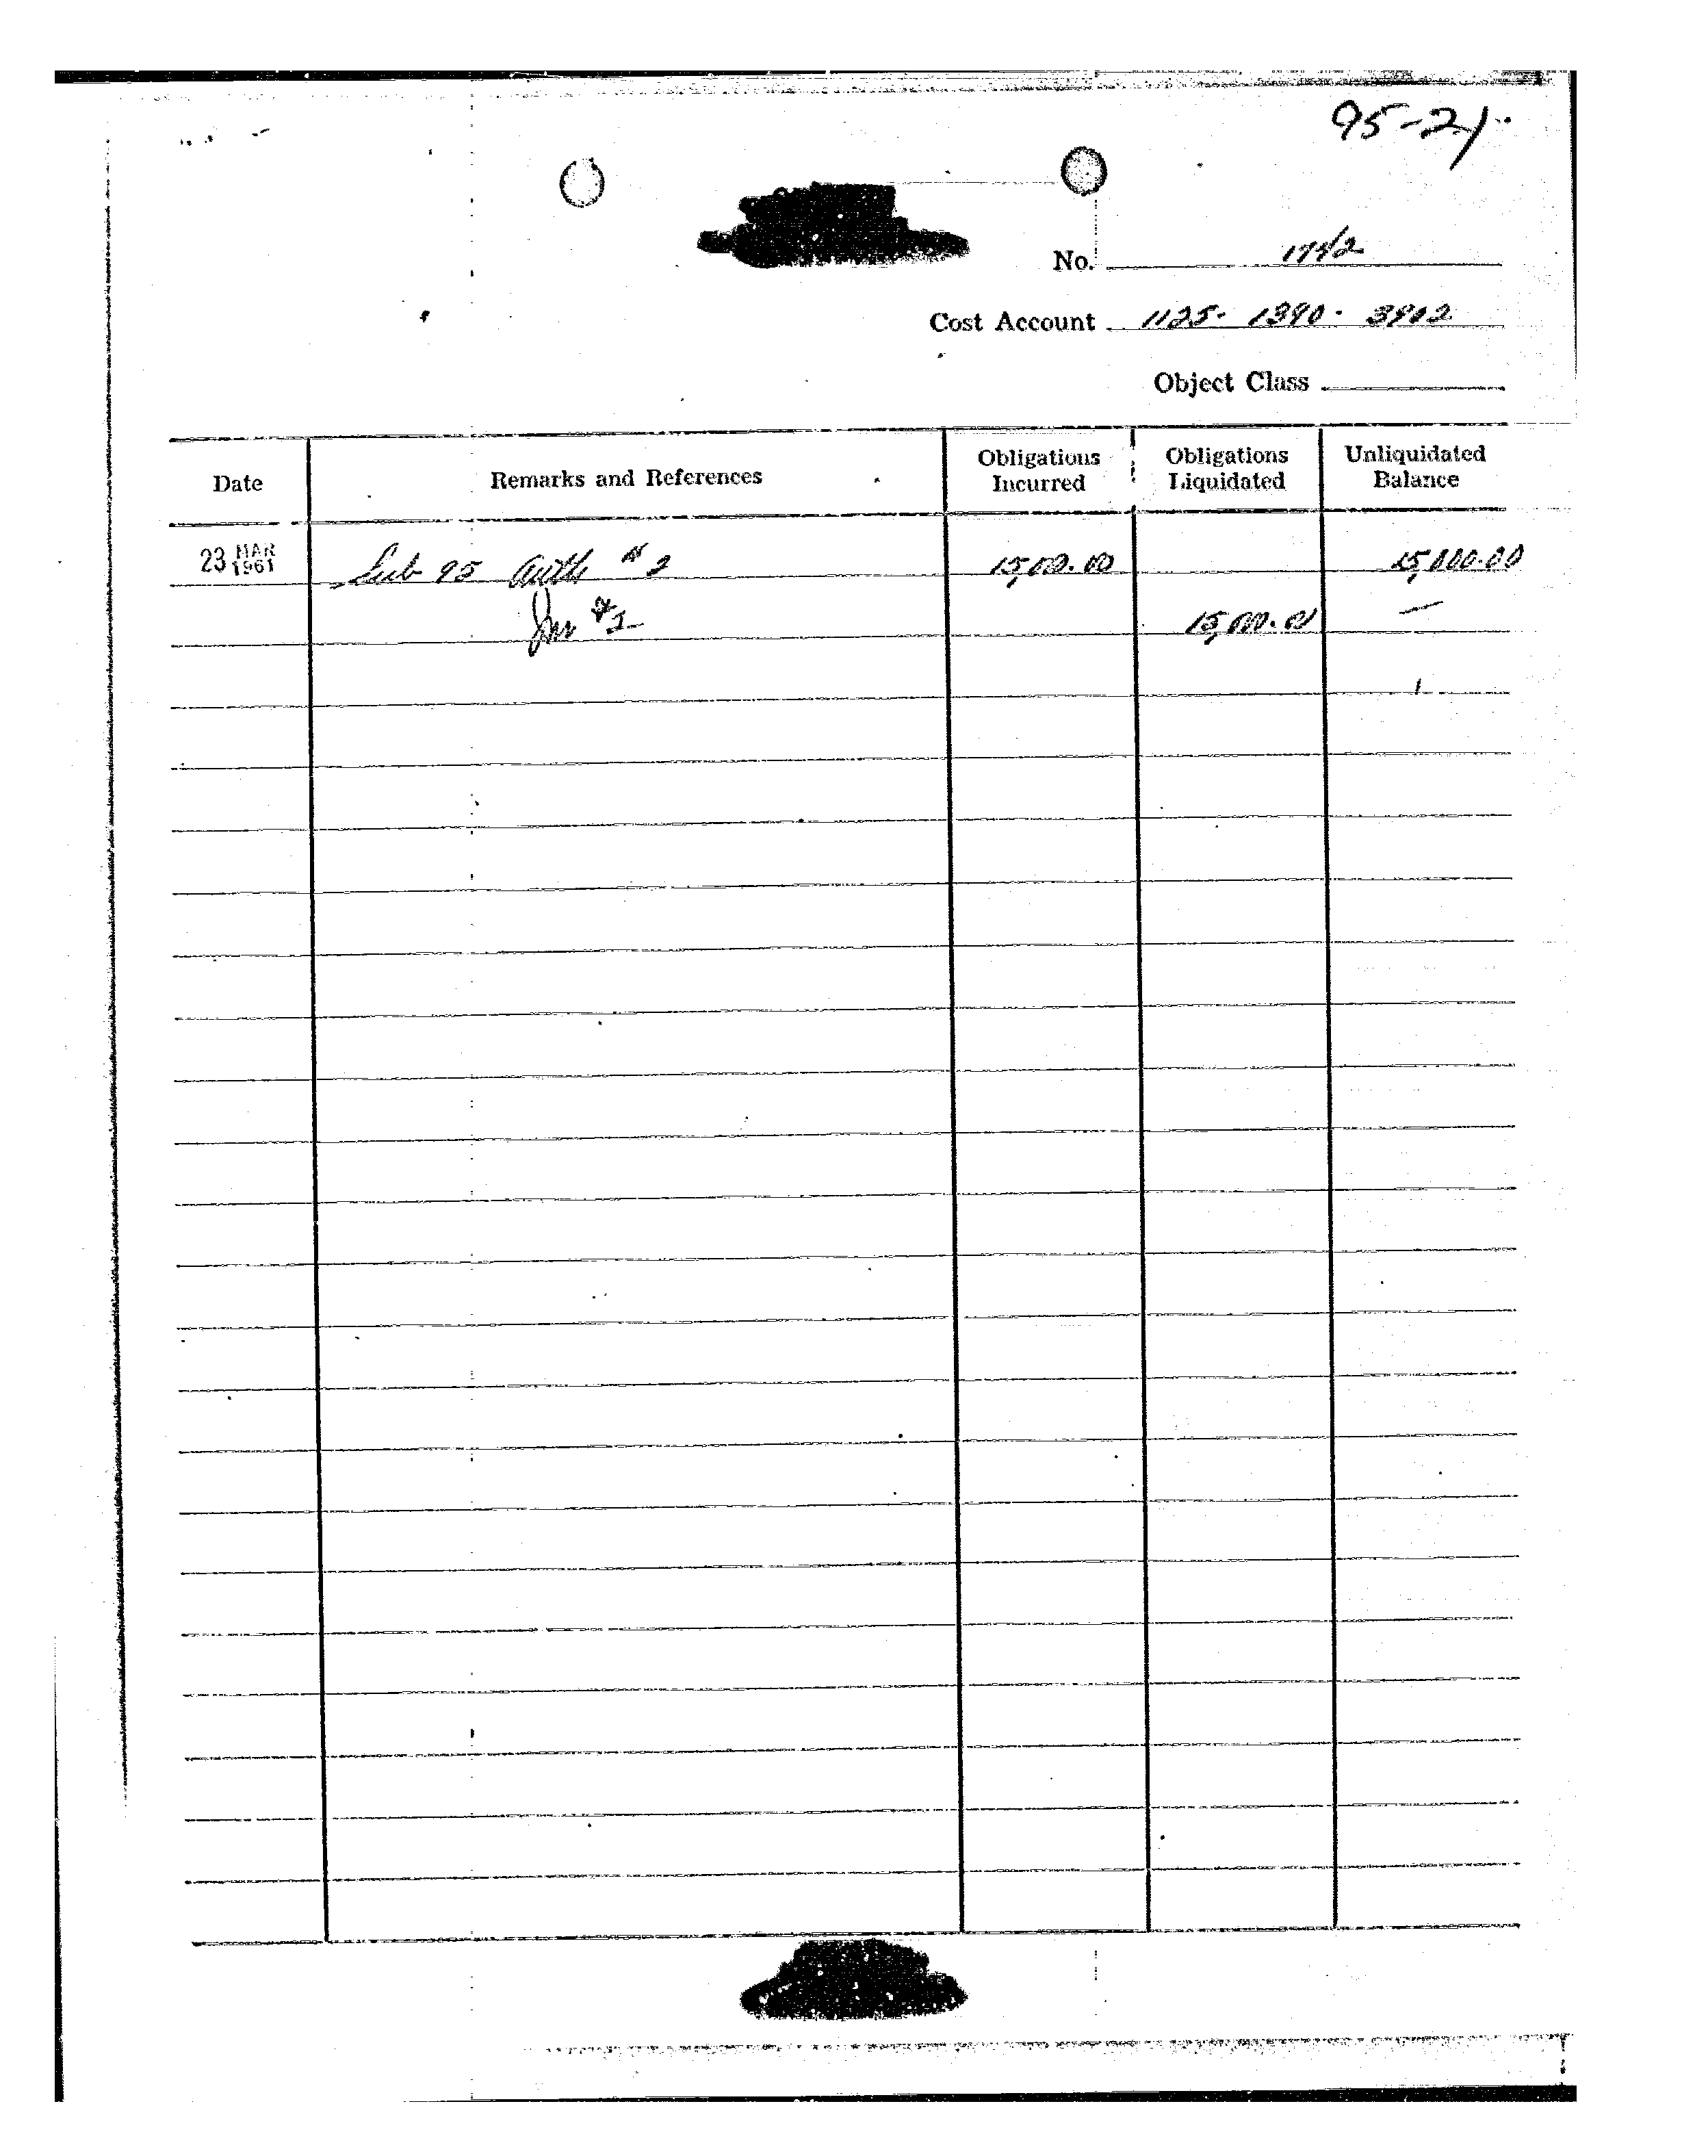 95-21
No. 1742
Cost Account 1125- 1390- 3902
Object Class
Date Remarks and References Obligations Incurred Obligations Liquidated Unliquidated Balance
23 MAR 1961 Sub 95 Auth #2 15,000.00 15,000.00
Inv #1 15,000.00 —